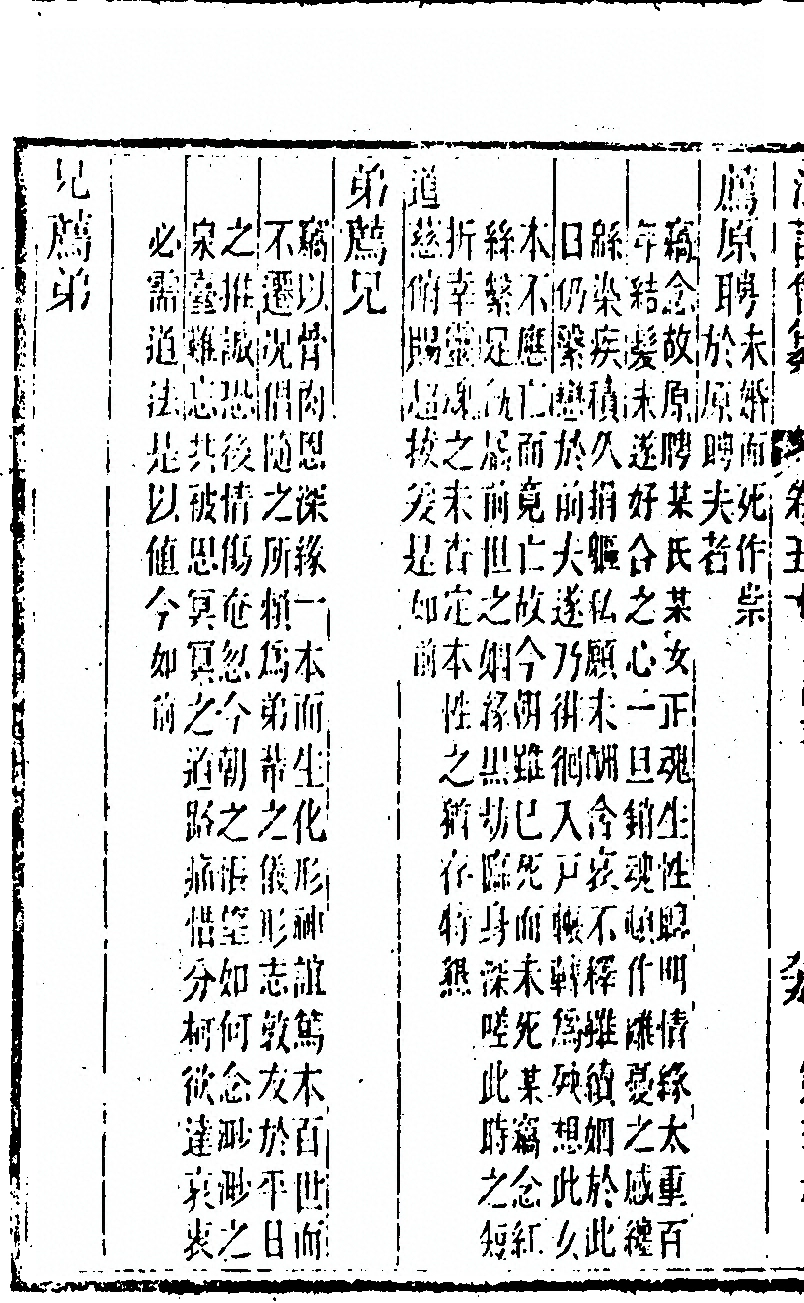 薦原聘未婚而死作祟
於原聘夫者
竊念故原聘某氏某女正魂生性聰明情緣太重百
年結髮未遂好合之心一旦銷魂頓作離憂之感纏
絲染疾積久捐軀私願未酬含哀不釋雖續姻於此
日仍繫戀於前夫遂乃徘徊入戶輾轉為殃想此女
本不應亡而竟亡故今朝雖已死而未死某竊念紅
絲繫足既居前世之姻緣黑劫臨身深嗟此時之短
折幸靈魂之未杳定本性之猶存特懇
道慈俯賜超拔爰是如前
弟薦兄
竊以骨肉恩深緣一本而生化形神誼篤本百世而
不遷況倡隨之所賴為弟菲之儀形志敦友於平日
之推誠恐後情傷奄忽今朝之悵望如何念渺渺之
泉臺難忘共被思冥冥之道路痛惜分柯欲達哀衷
必需道法是以値今如前
兄薦弟